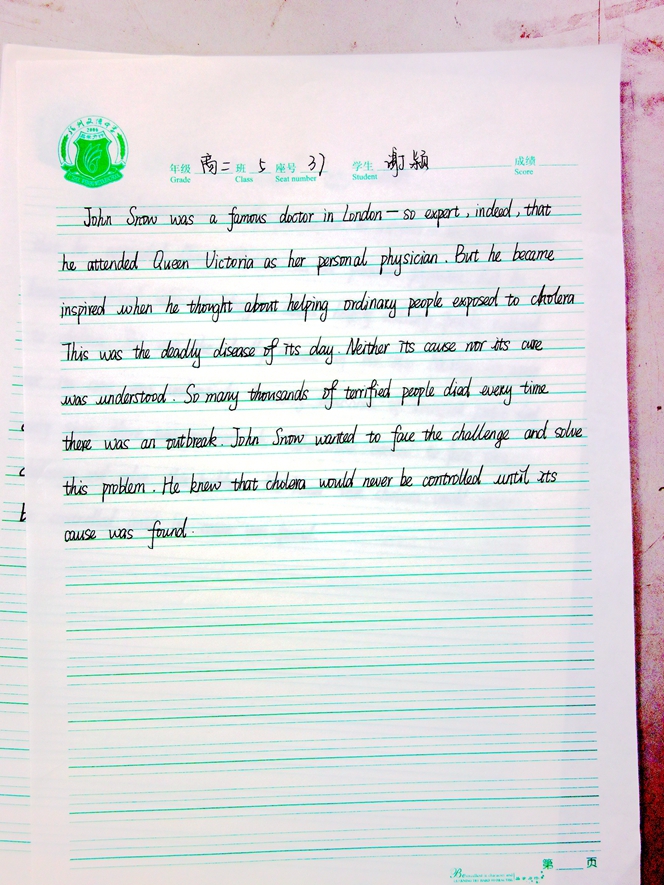 2006
年级 高二 班 5 座号 37 学生 谢颖 成绩
Grade Class Seat number Student Score
John Snow was a famous doctor in London — so expert, indeed, that
he attended Queen Victoria as her personal physician. But he became
inspired when he thought about helping ordinary people exposed to cholera
This was the deadly disease of its day. Neither its cause nor its cure
was understood. So many thousands of terrified people died every time
there was an outbreak. John Snow wanted to face the challenge and solve
this problem. He knew that cholera would never be controlled until its
cause was found.
第 页